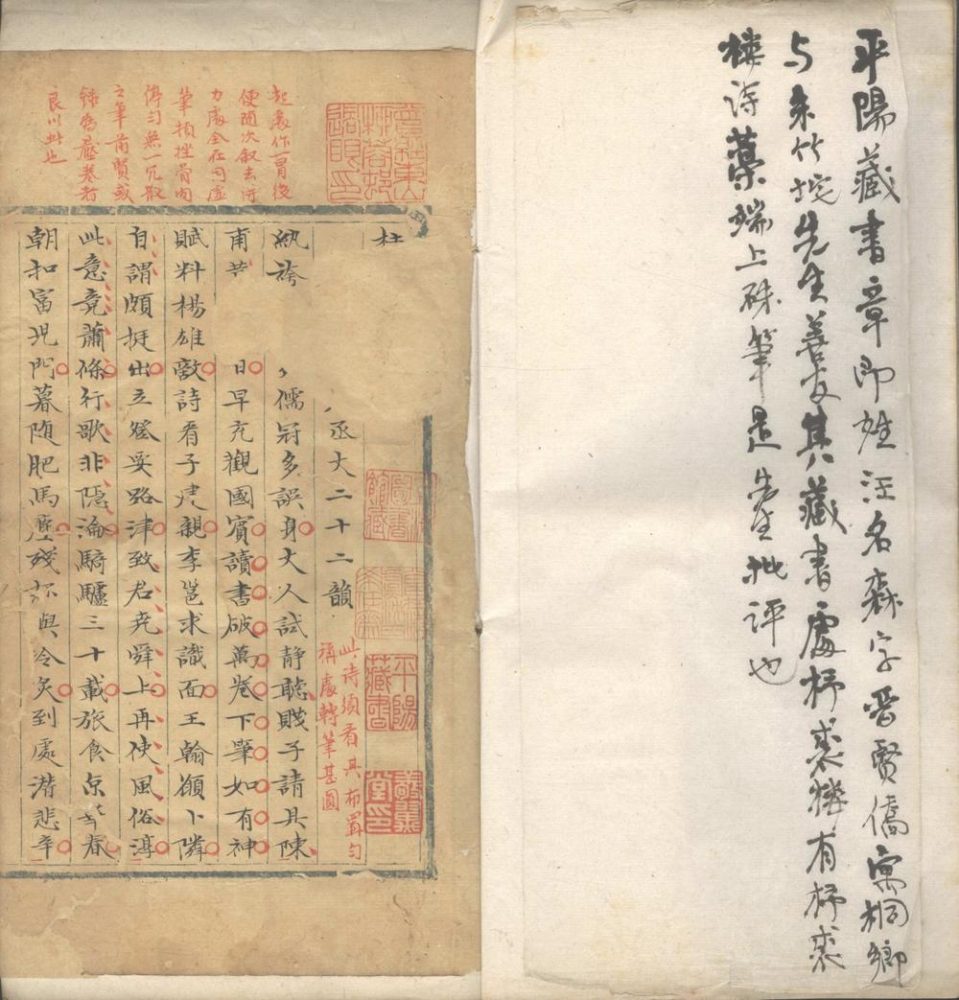 平陽藏書章即姓汪名森字晉賢僑寓桐鄉
与朱竹垞先生善友其藏書處杼裘樓有杼裘
樓詩藁端上硃筆是先生批評也
起處作一冒後
便隨次敘去得
力處全在句虛
筆頓挫骨肉
停勻無一冗散
之筆前賢或
録為壓卷者
良以此也
杜
丞丈二十二韻
此詩須看其布置勻
稱處轉筆甚圓
平陽藏書
紈袴 儒冠多誤身丈人試静聽賤子請具陳
甫昔 日早充觀國賓讀書破萬卷下筆如有神
賦料楊雄敵詩看子建親李邕求識面王翰願卜隣
自謂頗挺出立登要路津致君堯舜上再使風俗淳
此意竟蕭條行歌非隱淪騎驢三十載旅食京華春
朝扣富兒門暮随肥馬塵殘杯與冷炙到處潛悲辛